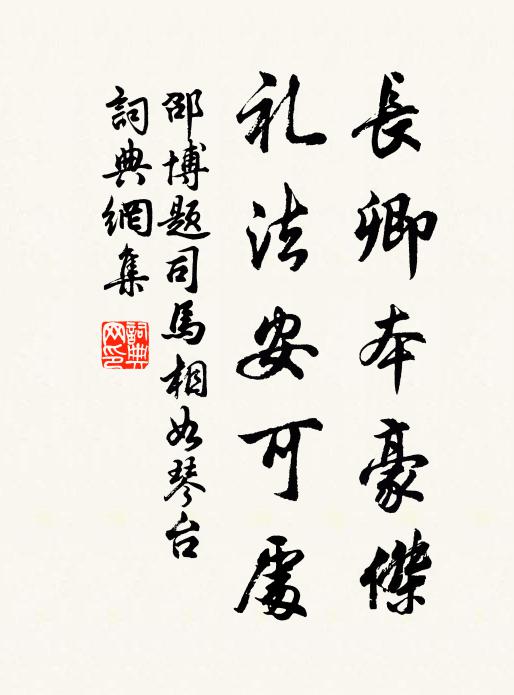 長卿本豪傑
礼法安可處
邵博题司馬相如琴台
詞典網集
詞典
網印